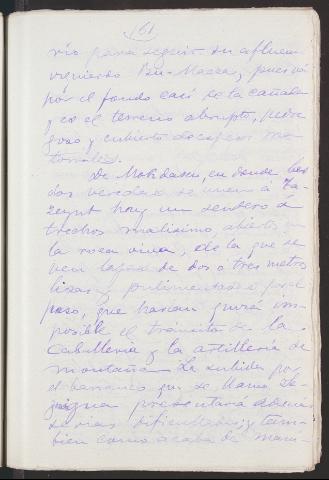 61
río para seguir su afluente
izquierdo Bu-Mazza, pues va
por el fondo casi de la cañada
y es el terreno abrupto, pedre
goso y cubierto de espesos ma
torrales.
De Mokdasen, en donde las
dos veredas se unen á
hay un sendero á
trechos malisimo, abierto en
la roca viva, de la que se
ven lajas de dos ó tres metros
lisas y pulimentadas por el
paso, que harían quizá im-
posible el tránsito de la
Caballería y la artillería de
montaña. La subida por
el barranco que se llama
presentará además
serias dificultades; y tam-
bien como acaba de mani-